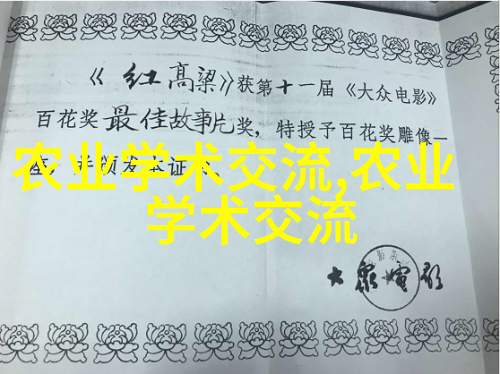 《红高粱》获第十一届《大众电影》
百花奖最佳故事片奖，特授予百花奖雕像一
座，并颁发本证
农业学术交流,农业
学术交流
大众电影